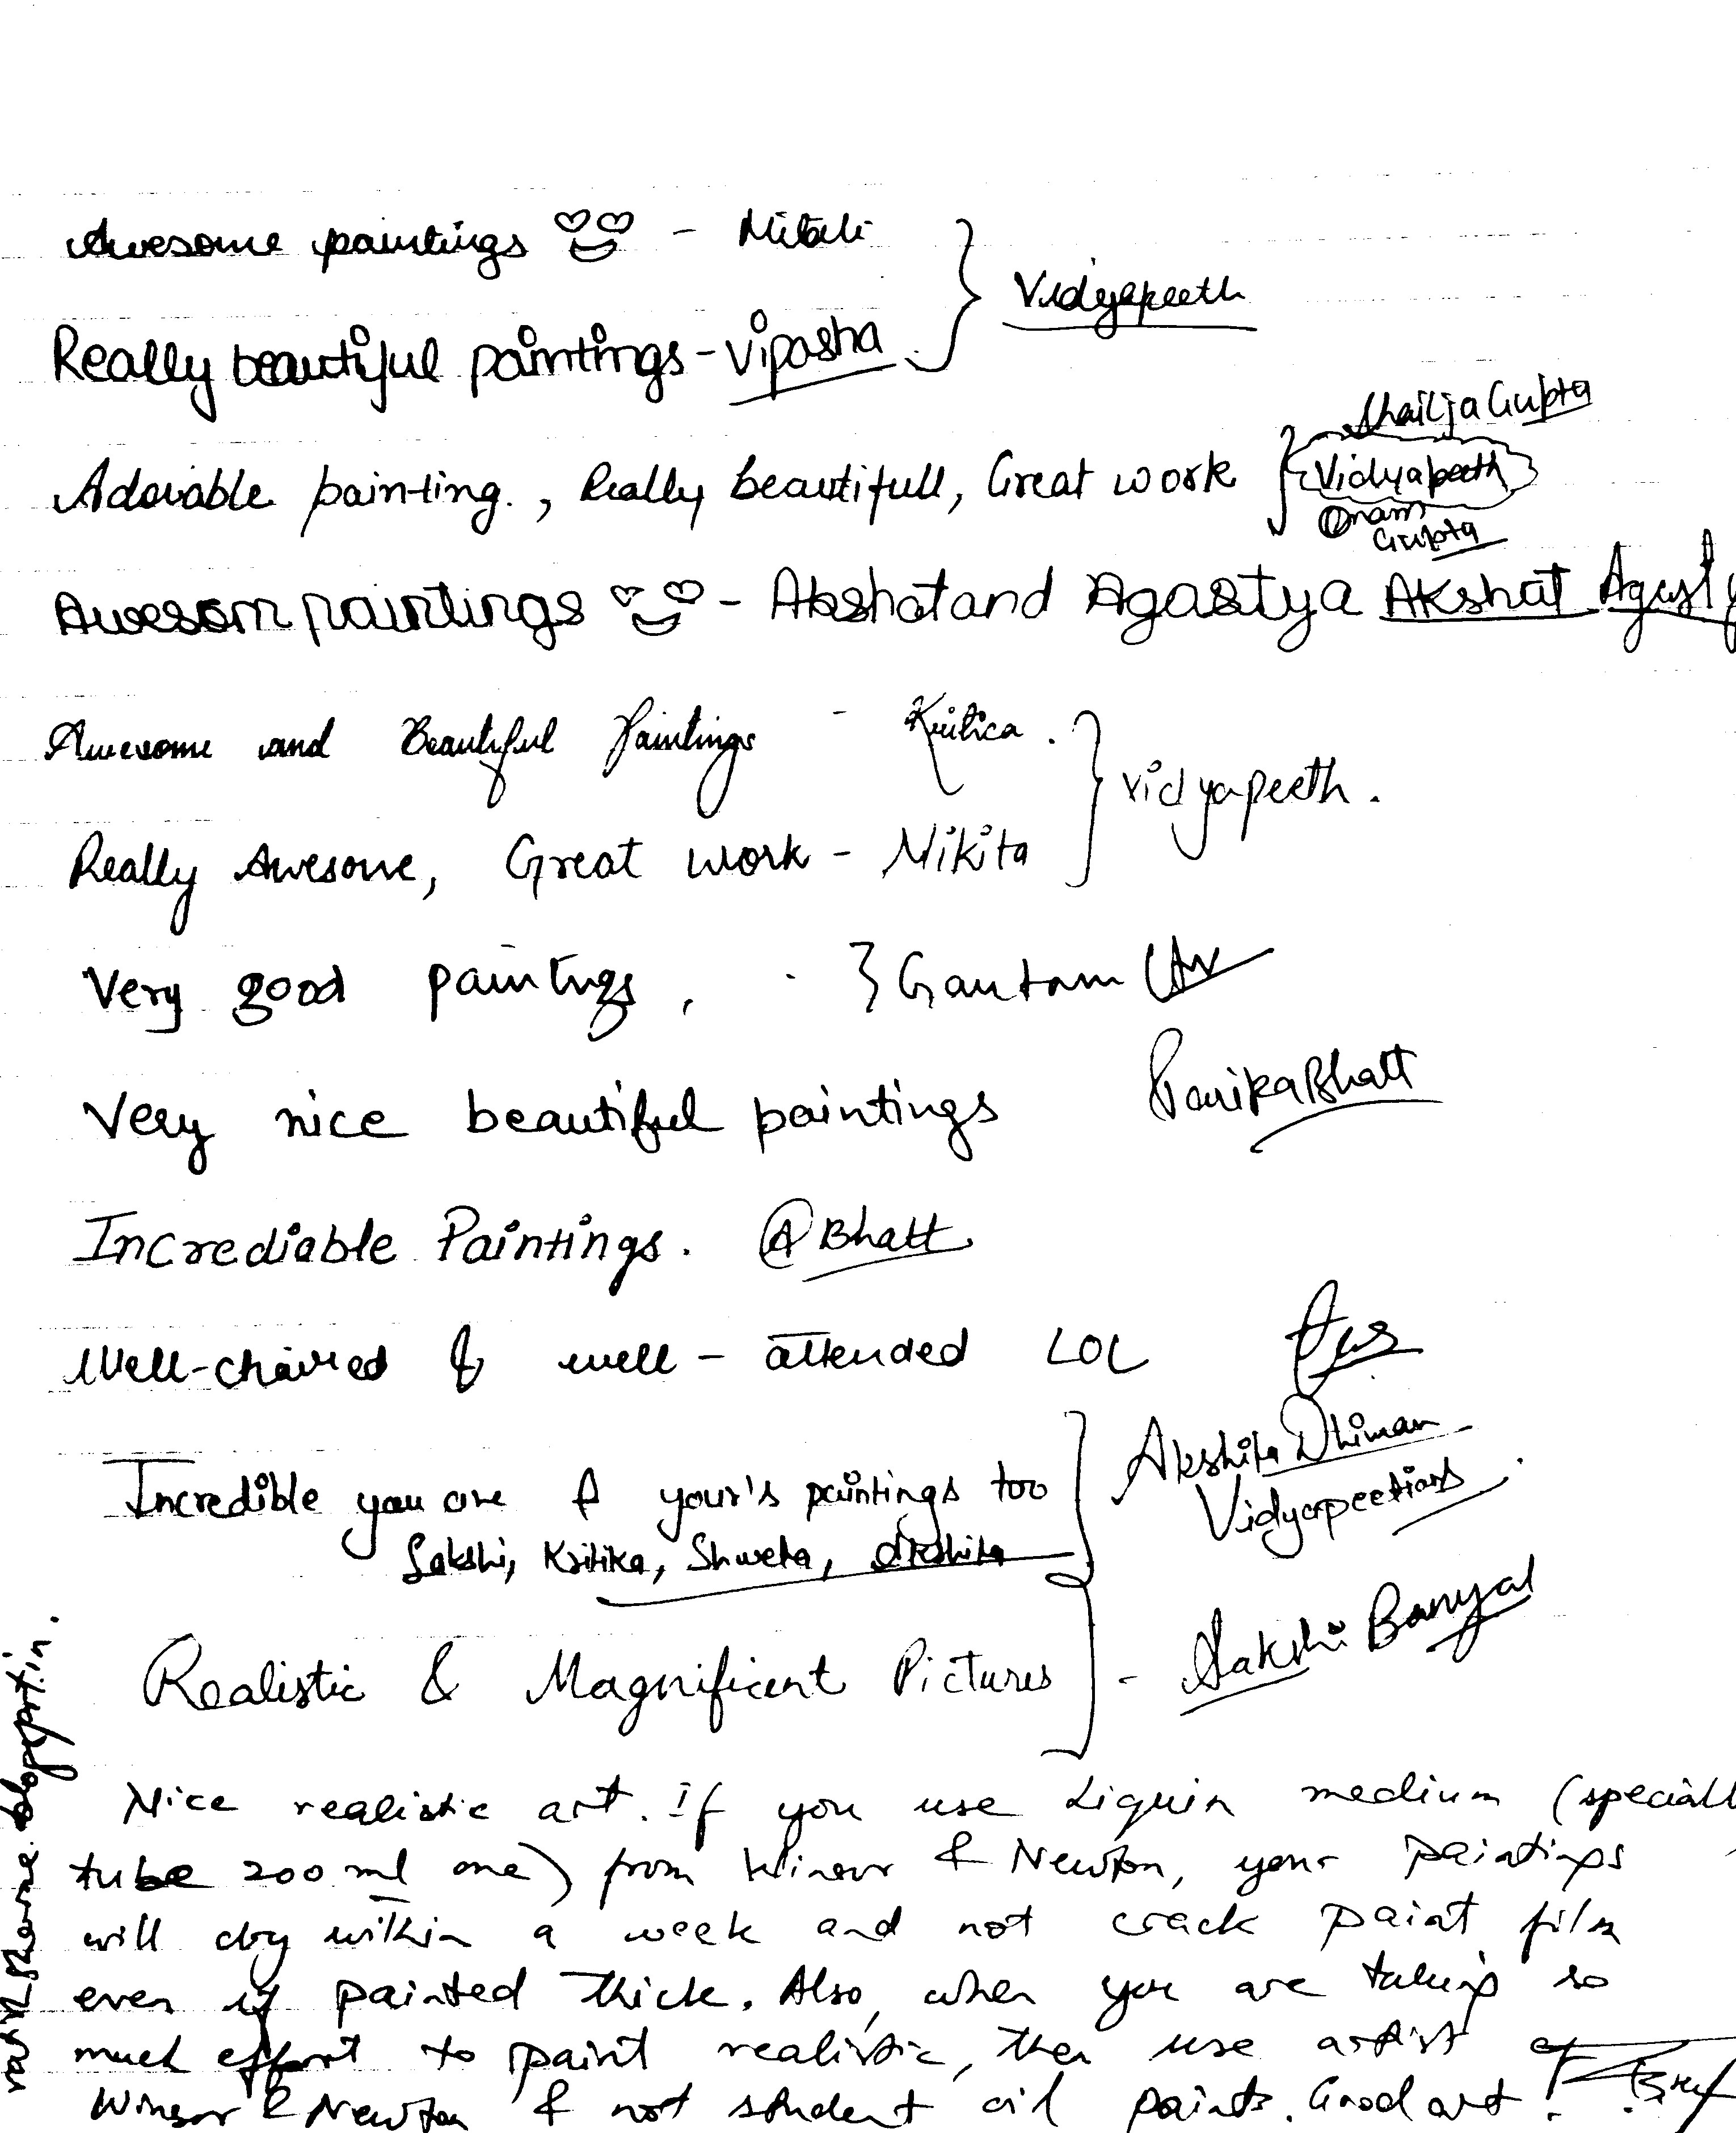 Awesome paintings - Mitali
Vidyapeeth
Really beautiful paintings - Vipasha
Shailja Gupta
Adorable painting., Really beautifull, Great work
Vidyapeeth
Gupta
Awesom paintings - Akshat and Agastya Akshat Agasty
Awesome and Beautiful Paintings - Kritica.
Vidyapeeth.
Really Awesome, Great work - Nikita
Very good paintings, Gautam
Very nice beautiful paintings Bhatt
Incrediable Paintings. A Bhatt
Well-chaired & well-attended LOL
Akshita Dhiman
Incredible you are & your's paintings too
Vidyapeetians
Sakshi, Kritika, Shweta, Akshita
Realistic & Magnificent Pictures - Sakshi Banyal
Nice realistic art. If you use Liquin medium (speciall
tube 200 ml one) from Winsor & Newton, your paintings
will dry within a week and not crack paint film
even if painted thick. Also, when you are taking so
much effort to paint realistic, then use artist of
Winsor & Newton & not student oil paints. Good art!